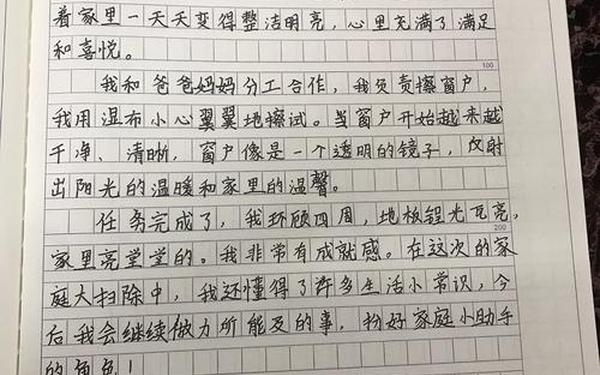 着家里一天天变得整洁明亮，心里充满了满足
和喜悦。
100
我和爸爸妈妈分工合作，我负责擦窗户，
我用湿布小心翼翼地擦试。当窗户开始越来越
干净、清晰，窗户像是一个透明的镜子，反射
出阳光的温暖和家里的温馨。
任务完成了，我环顾四周，地板锃光瓦亮，
200
家里亮堂堂的。我非常有成就感。在这次的家
庭大扫除中，我还懂得了许多生活小常识，今
后我会继续做力所能及的事，扮好家庭小助手
的角色！